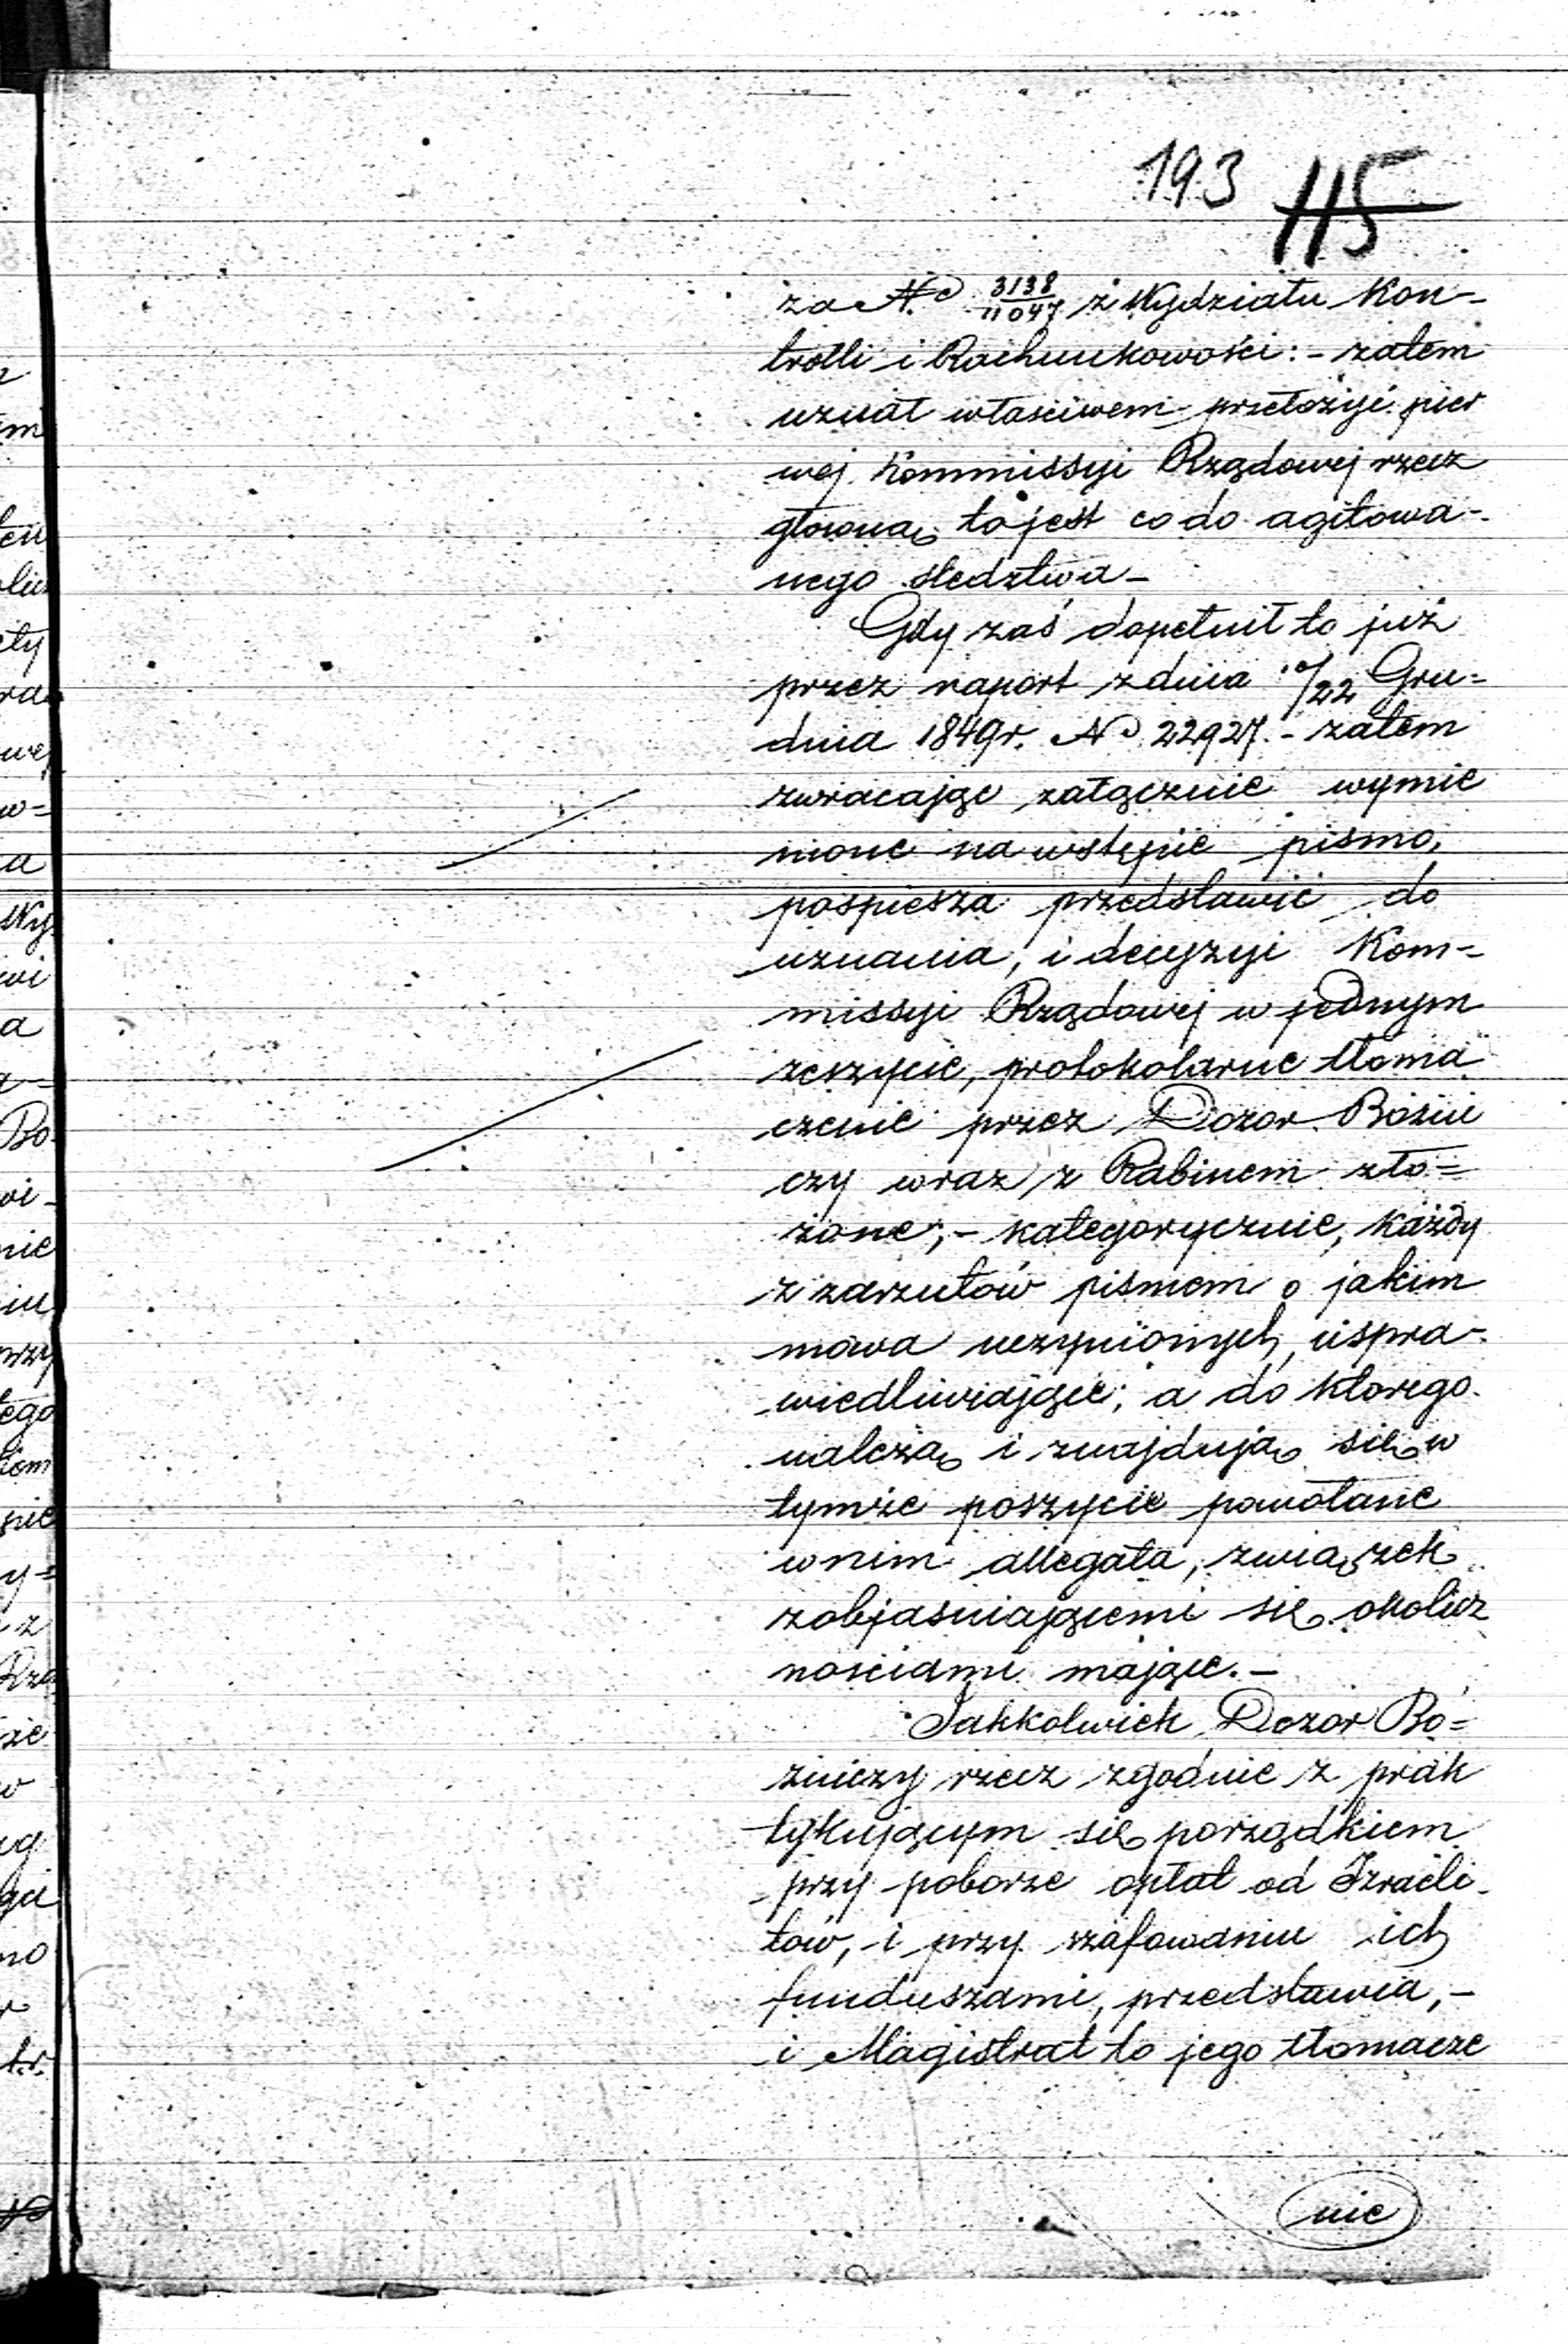 193 115
za No 3138/11047 z Wydziału Kon-
trolli i Rachunkowości:- zatem
uznał właściwem przełożyć pier
wej Kommissyi Rządowej rzecz
główną to jest co do agitowa-
nego śledztwa-
Gdy zaś dopełnił to już
przez raport z dnia 10/22 Gru-
dnia 1849r. No 22927.- zatem
zwracając załącznie wymie
nione na wstępie pismo,
pospiesza przedstawić do
uznania, i decyzyi Kom-
missyi Rządowej w jednym
zeszycie, protokolarne tłoma
czenie przez Dozor Bóżni
czy wraz z Rabinem zło=
żone;- kategorycznie, każdy
z zarzutów pismem o jakim
mowa uczynionych, uspra-
wiedliwiające; a do którego
należą i znajdują się w
tymże poszycie powołane
w nim allegata, związek
z objaśniającemi się okolicz
nościami mające.-
Jakkolwiek Dozor Bó=
żniczy rzecz zgodnie z prak
tykującym się porządkiem
przy poborze opłat od Izraeli
tów, i przy szafowaniu ich
funduszami, przedstawia,-
i Magistrat to jego tłomacze
nie